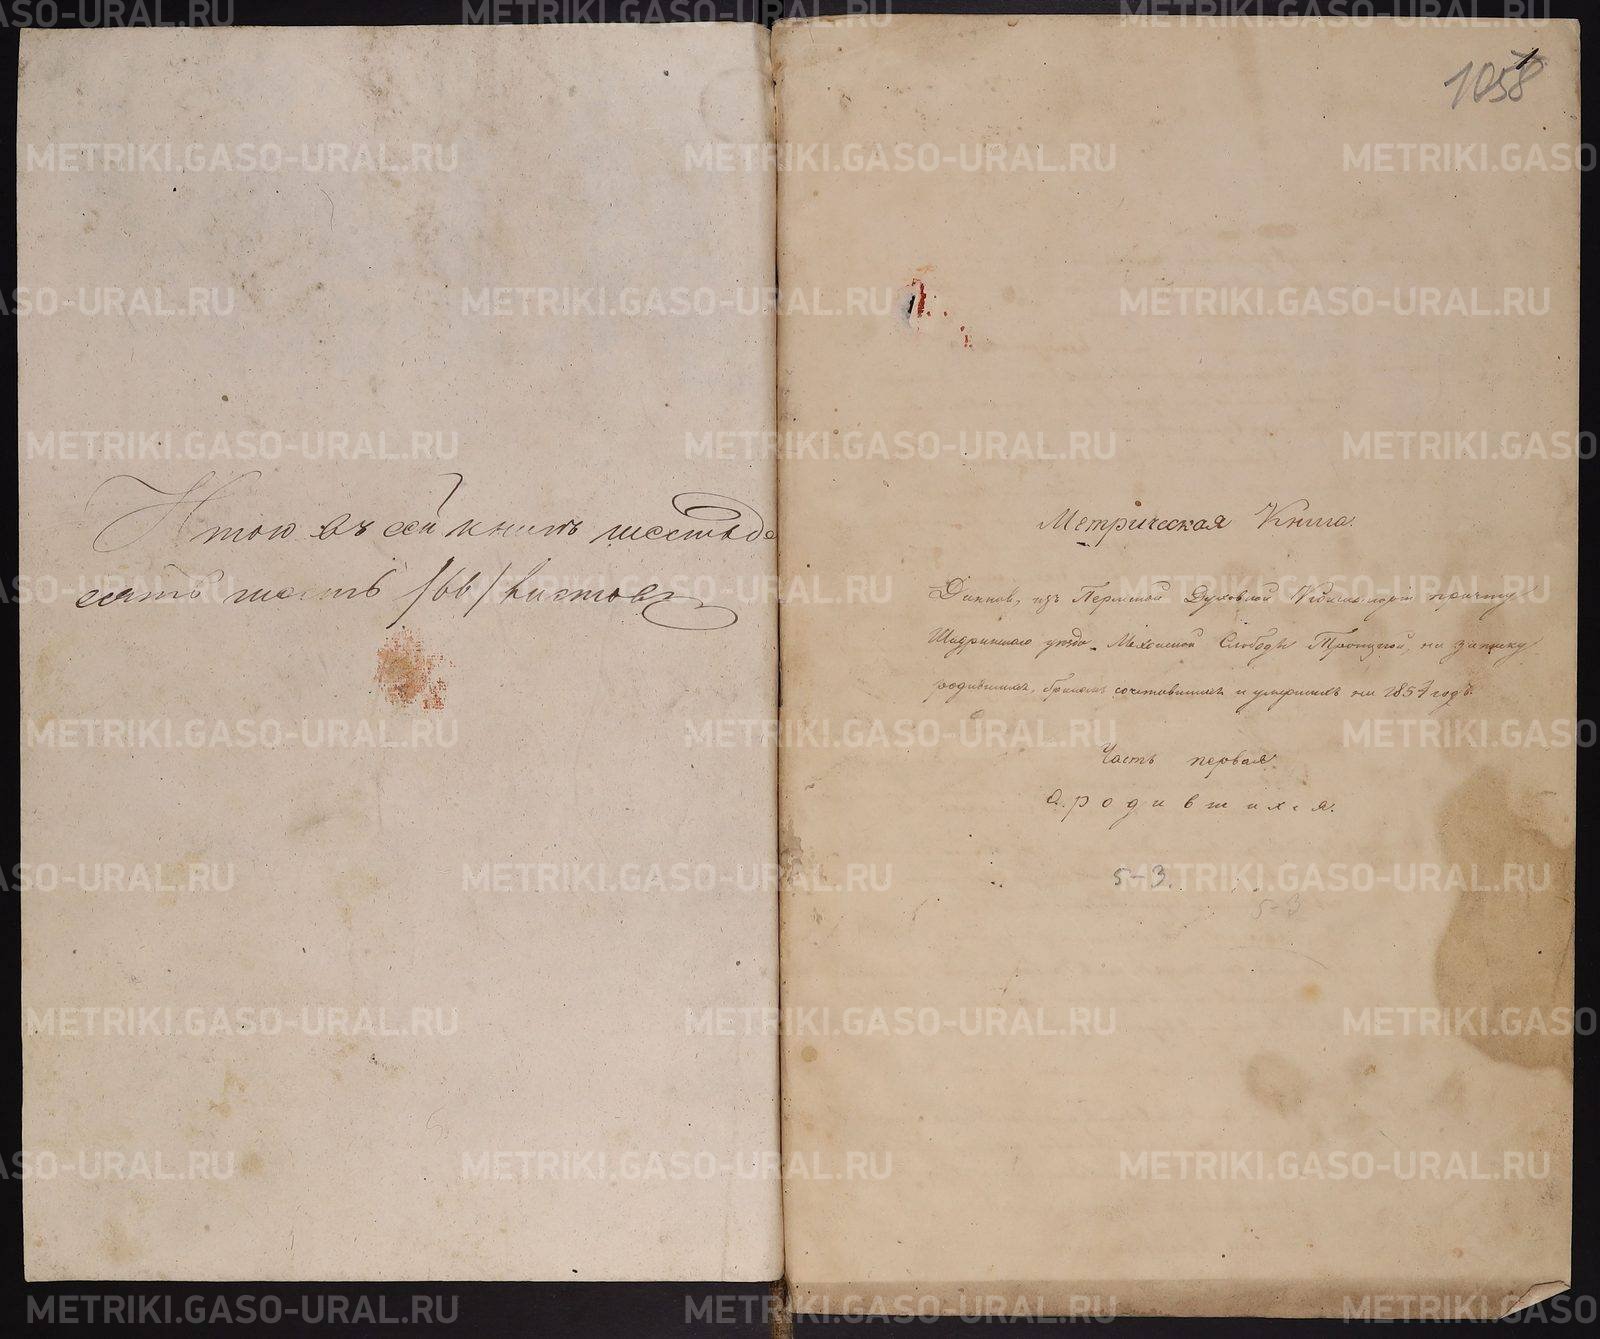 Итого въ сей книгѣ шестьде
сятъ шесть /66/ листовъ
1058
1
Метрическая Книга.
Данная, изъ Пермской Духовной Консисторіи причту
Шадринскаго уѣзда Мехонской Слободы Троицкой, на записку
родившихся, бракомъ сочетавшихся и умершихъ на 1857 годъ.
Часть первая.
О родившихся.
5-3.
5-3
METRIKI.GASO-URAL.RU